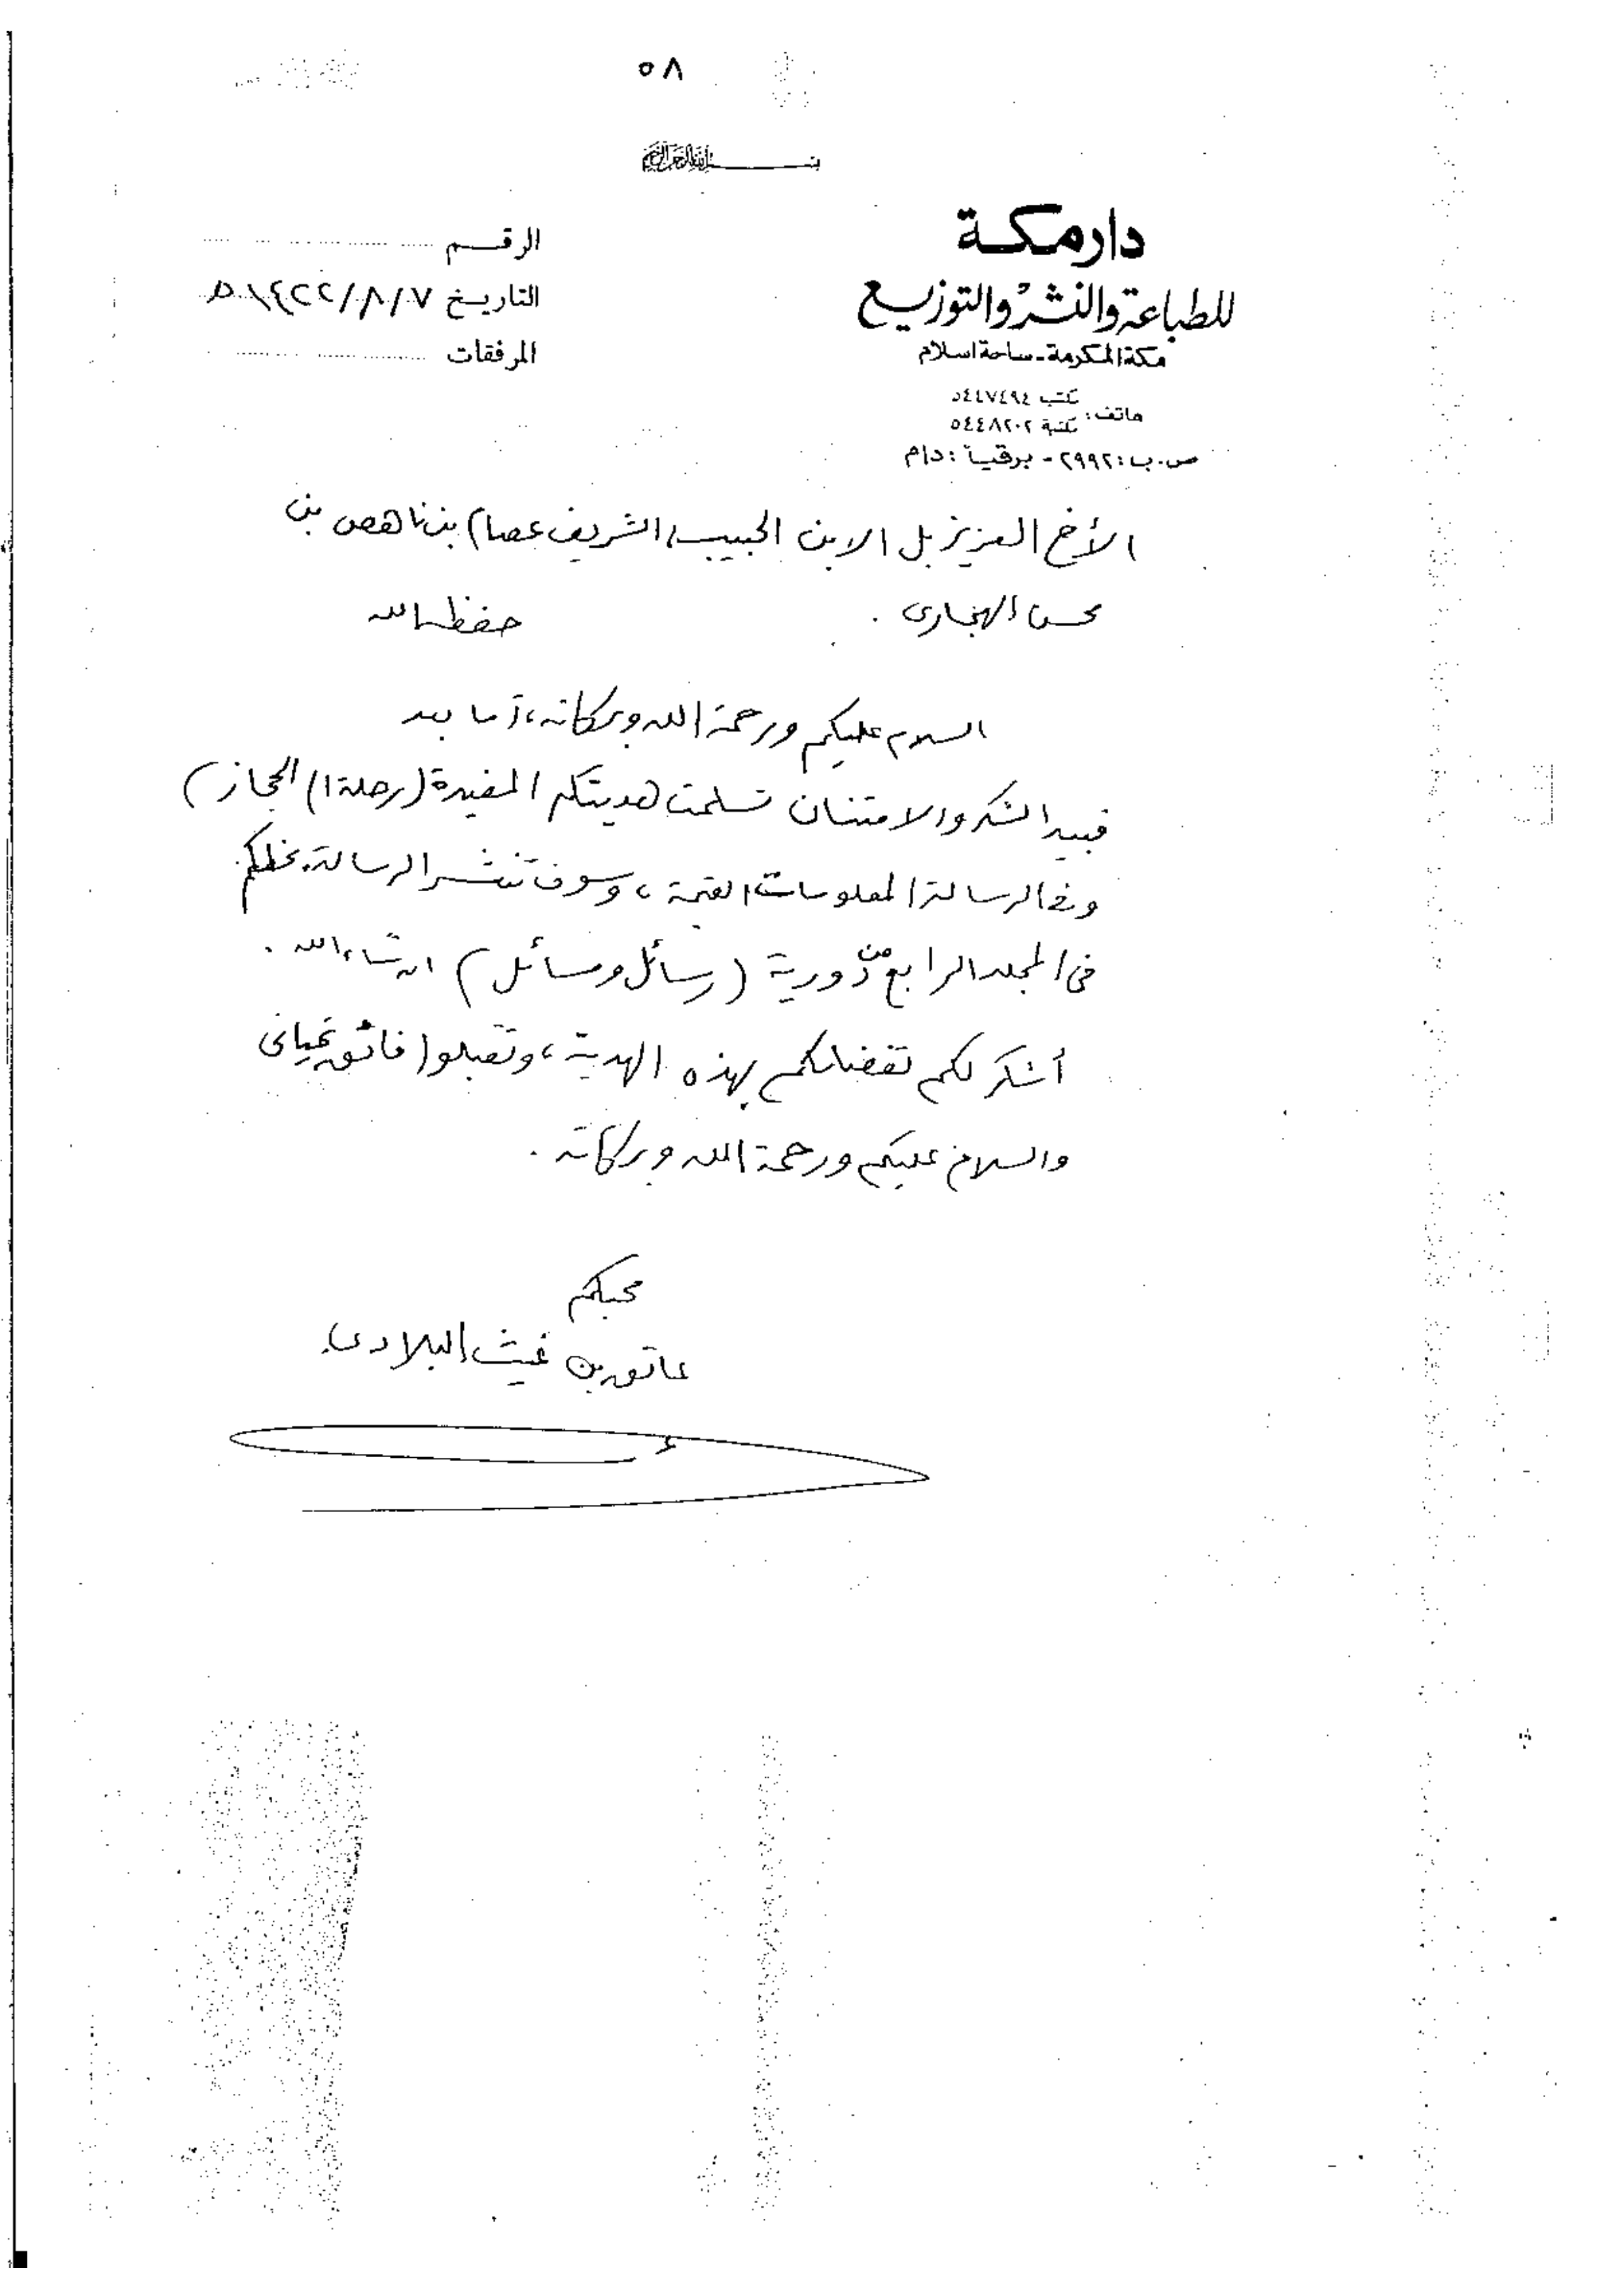 ٥٨
بسم الله الرحمن الرحيم
دار مكة
للطباعة والنشر والتوزيع
مكة المكرمة - ساحة اسلام
هاتف: مكتب ٥٤٤٧٤٩٤
مكتبة ٥٤٤٨٢٠٢
ص.ب: ٢٩٩٢ - برقياً: دام
الرقم
التاريخ ٧/٨/١٤٢٢ه
المرفقات
الأخ العزيز بل الابن الحبيب، الشريف عصام بن ناهض بن
محسن الهجاري . حفظه الله
السلام عليكم ورحمة الله وبركاته، أما بعد
فبيد الشكر والامتنان تسلمت هديتكم المفيدة (رحلة الحجاز)
وفي الرسالة المعلومات القيمة، وسوف تنشر الرسالة بخطكم
في المجلد الرابع من دورية (رسائل ومسائل) ان شاء الله .
أشكر لكم تفضلكم بهذه الهدية، وتقبلوا فائق تحياتي
والسلام عليكم ورحمة الله وبركاته .
محبكم
عاتق بن غيث البلادي